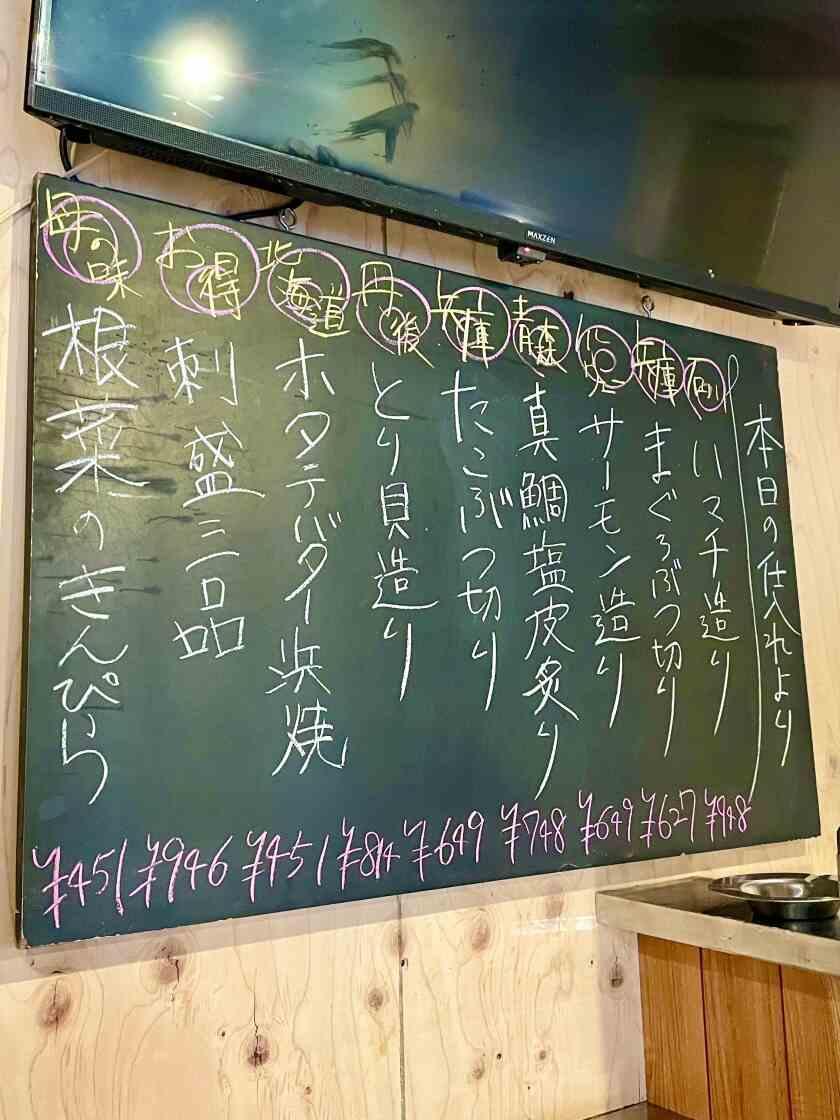 MAXZEN
本日の仕入れより
石川 ハマチ造り ¥948
兵庫 まぐろぶつ切り ¥627
サーモン造り ¥649
青森 真鯛塩皮炙り ¥748
兵庫 たこぶつ切り ¥649
丹後 とり貝造り ¥814
北海道 ホタテバター浜焼 ¥451
お得 刺盛三品 ¥946
母の味 根菜のきんぴら ¥451